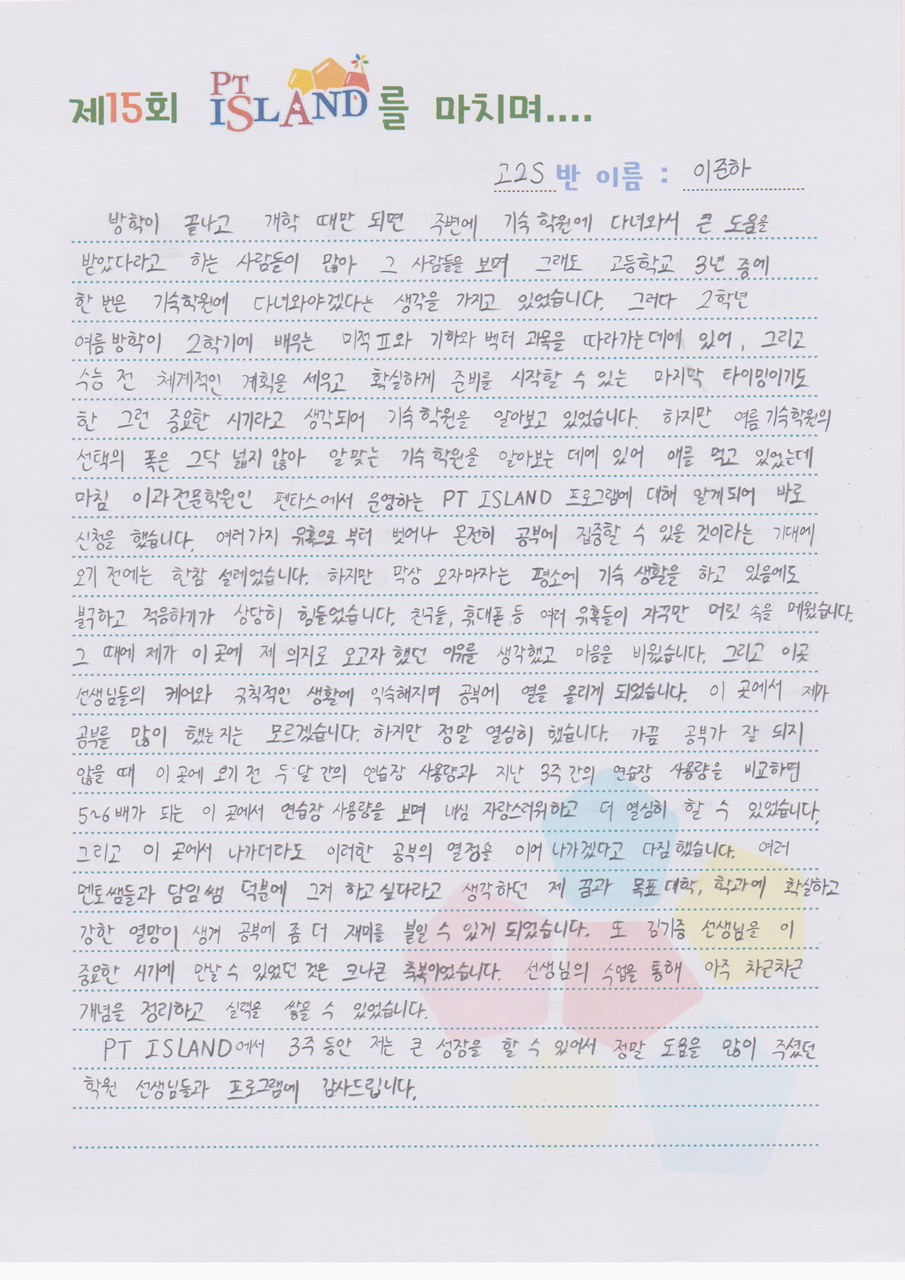 제15회 PT ISLAND를 마치며....
고2S 반 이름 : 이준하
방학이 끝나고 개학 때만 되면 주변에 기숙학원에 다녀와서 큰 도움을
받았다라고 하는 사람들이 많아 그 사람들을 보며 그래도 고등학교 3년 중에
한 번은 기숙학원에 다녀와야겠다는 생각을 가지고 있었습니다. 그러다 2학년
여름방학이 2학기에 배우는 미적Ⅱ와 기하와 벡터 과목을 따라가는데에 있어, 그리고
수능 전 체계적인 계획을 세우고 확실하게 준비를 시작할 수 있는 마지막 타이밍이기도
한 그런 중요한 시기라고 생각되어 기숙학원을 알아보고 있었습니다. 하지만 여름기숙학원의
선택의 폭은 그닥 넓지 않아 알맞는 기숙학원을 알아보는 데에 있어 애를 먹고 있었는데
마침 이과전문학원인 펜타스에서 운영하는 PT ISLAND 프로그램에 대해 알게되어 바로
신청을 했습니다. 여러가지 유혹으로 부터 벗어나 온전히 공부에 집중할 수 있을 것이라는 기대에
오기 전에는 한참 설레었습니다. 하지만 막상 오자마자는 평소에 기숙생활을 하고 있음에도
불구하고 적응하기가 상당히 힘들었습니다. 친구들, 휴대폰 등 여러 유혹들이 자꾸만 머릿 속을 메웠습니다.
그 때에 제가 이 곳에 제 의지로 오고자 했던 이유를 생각했고 마음을 비웠습니다. 그리고 이곳
선생님들의 케어와 규칙적인 생활에 익숙해지며 공부에 열을 올리게 되었습니다. 이 곳에서 제가
공부를 많이 했는지는 모르겠습니다. 하지만 정말 열심히 했습니다. 가끔 공부가 잘 되지
않을 때 이 곳에 오기 전 두 달 간의 연습장 사용량과 지난 3주간의 연습장 사용량을 비교하면
5~6배가 되는 이 곳에서 연습장 사용량을 보며 내심 자랑스러워하고 더 열심히 할 수 있었습니다.
그리고 이 곳에서 나가더라도 이러한 공부의 열정을 이어 나가겠다고 다짐했습니다. 여러
멘토쌤들과 담임쌤 덕분에 그저 하고싶다라고 생각하던 제 꿈과 목표대학, 학과에 확실하고
강한 열망이 생겨 공부에 좀 더 재미를 붙일 수 있게 되었습니다. 또 김기승 선생님을 이
중요한 시기에 만날 수 있었던 것은 크나큰 축복이었습니다. 선생님의 수업을 통해 아주 차근차근
개념을 정리하고 실력을 쌓을 수 있었습니다.
PT ISLAND에서 3주 동안 저는 큰 성장을 할 수 있어서 정말 도움을 많이 주셨던
학원 선생님들과 프로그램에 감사드립니다.